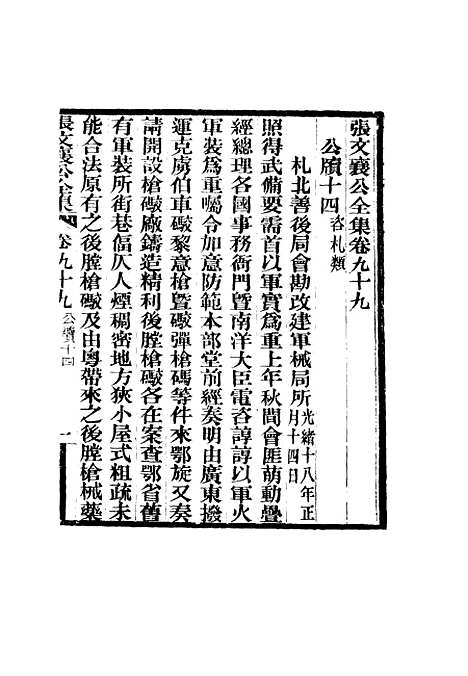 張文襄公全集卷九十九
公牘十四 咨札類
札北善後局會勘改建軍械局所 光緒十八年正月十四日
照得武備要需首以軍實為重上年秋間會匪萌動疊
經總理各國事務衙門暨南洋大臣電咨諄諄以軍火
軍裝為重囑令加意防範本部堂前經奏明由廣東撥
運克虜伯車礮黎意槍暨礮彈槍碼等件來鄂旋又奏
請開設槍礮廠鑄造精利後膛槍礮各在案查鄂省舊
有軍裝所街巷偪仄人煙稠密地方狹小屋式粗疏未
能合法原有之後膛槍礮及由粵帶來之後膛槍械藥
張文襄公全集 卷九十九 公牘十四 一